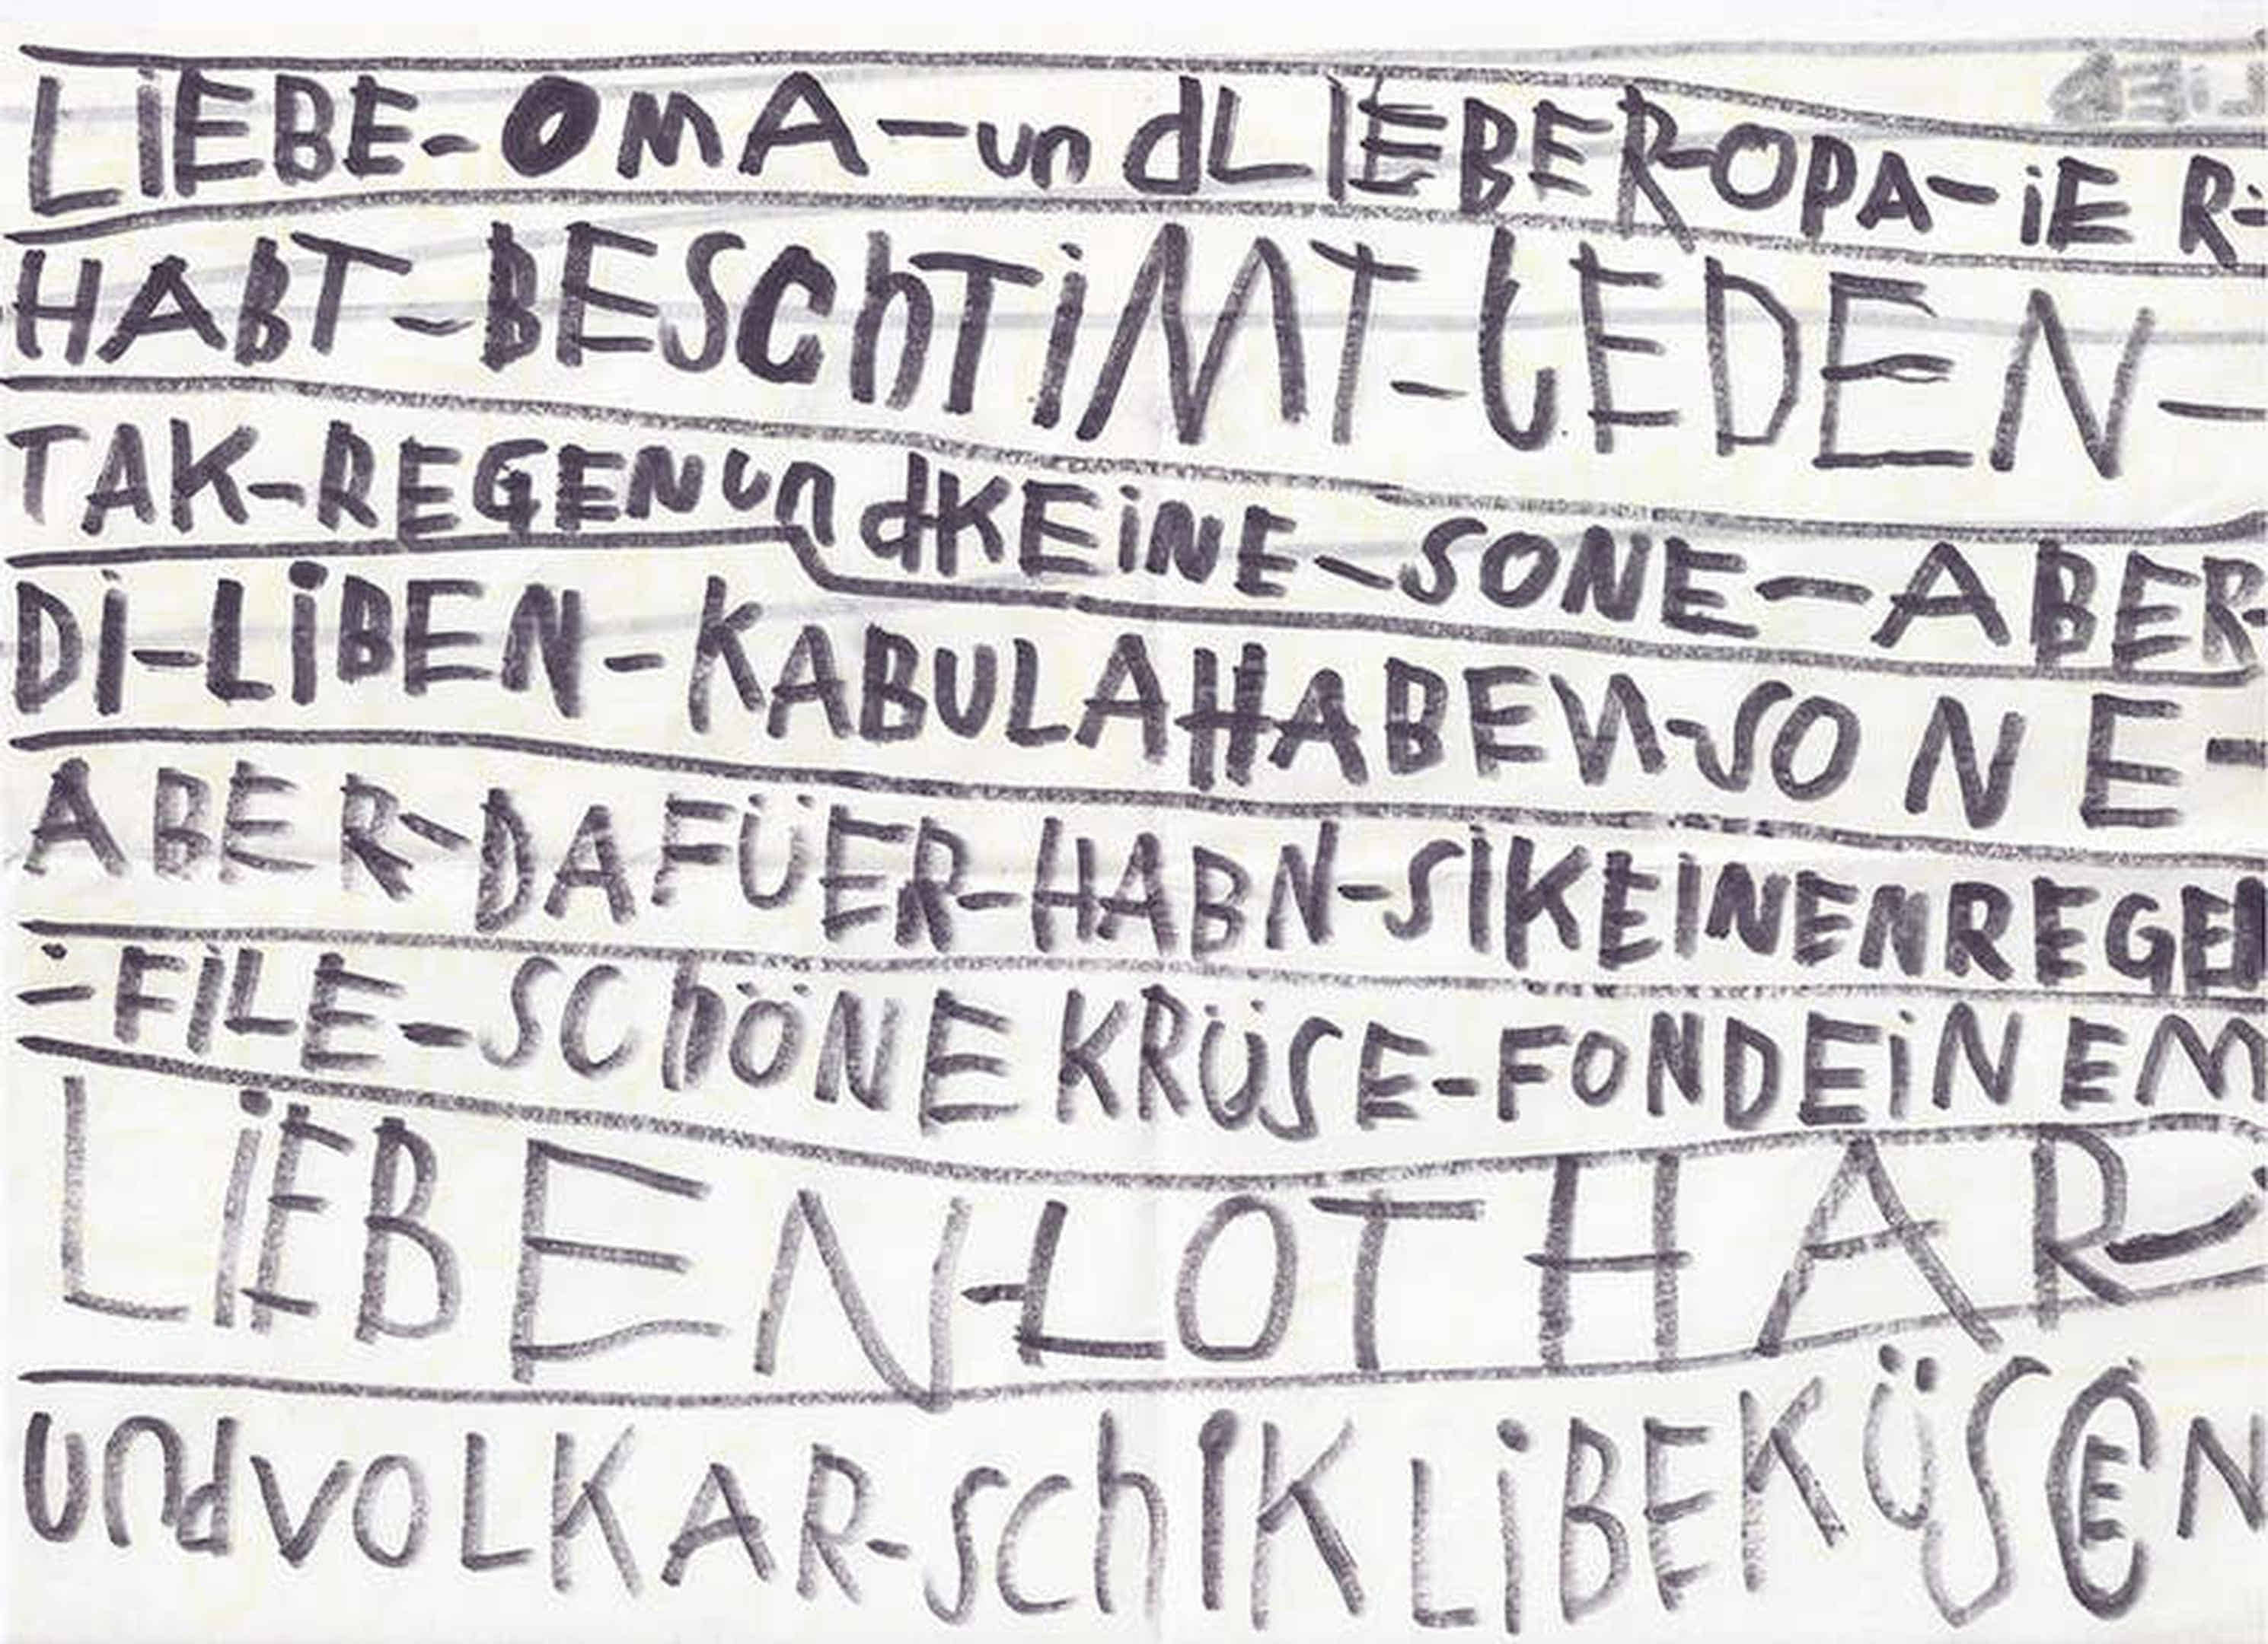 LiEBE-OMA-undLIEBER-OPA-iER-
HABT-BESChTiMT-JEDEN-
TAK-REGENundKEiNE-SONE-ABER-
Di-LiBEN-KABULAHABEN-SONE-
ABER-DAFÜER-HABN-SIKEINENREGEN
-FiLE-SChÖNEKRÜSE-FONDEiNEM
LiEBEN-LOTHAR
undVOLKAR-SChIKLiBEKÜSEN